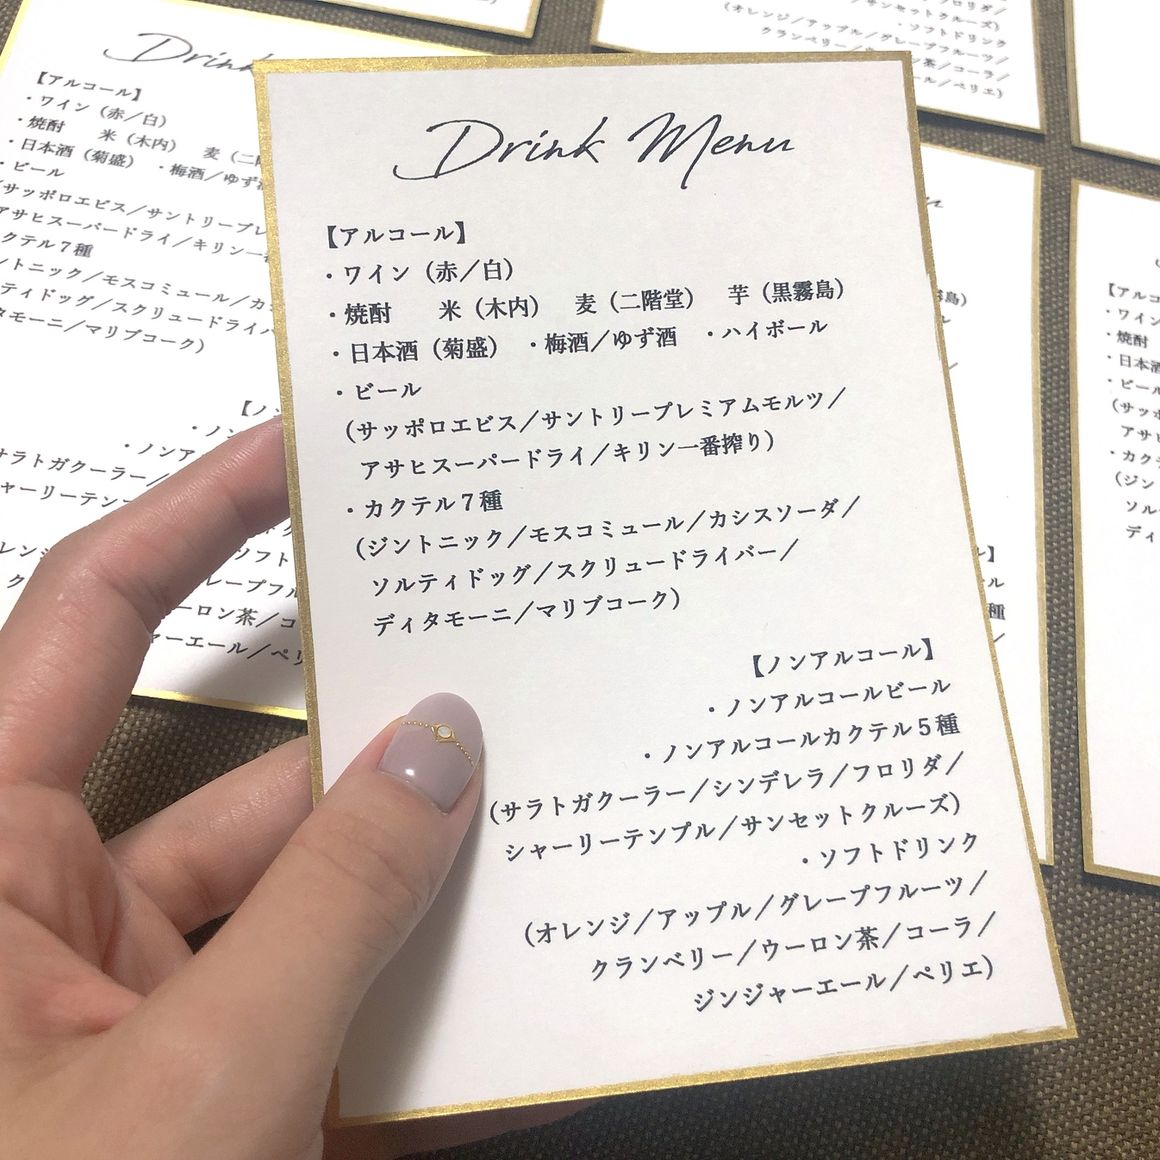 Drink Menu
【アルコール】
・ワイン（赤／白）
・焼酎　米（木内）　麦（二階堂）　芋（黒霧島）
・日本酒（菊盛）　・梅酒／ゆず酒　・ハイボール
・ビール
（サッポロエビス／サントリープレミアムモルツ／
アサヒスーパードライ／キリン一番搾り）
・カクテル７種
（ジントニック／モスコミュール／カシスソーダ／
ソルティドッグ／スクリュードライバー／
ディタモーニ／マリブコーク）
【ノンアルコール】
・ノンアルコールビール
・ノンアルコールカクテル５種
（サラトガクーラー／シンデレラ／フロリダ／
シャーリーテンプル／サンセットクルーズ）
・ソフトドリンク
（オレンジ／アップル／グレープフルーツ／
クランベリー／ウーロン茶／コーラ／
ジンジャーエール／ペリエ）